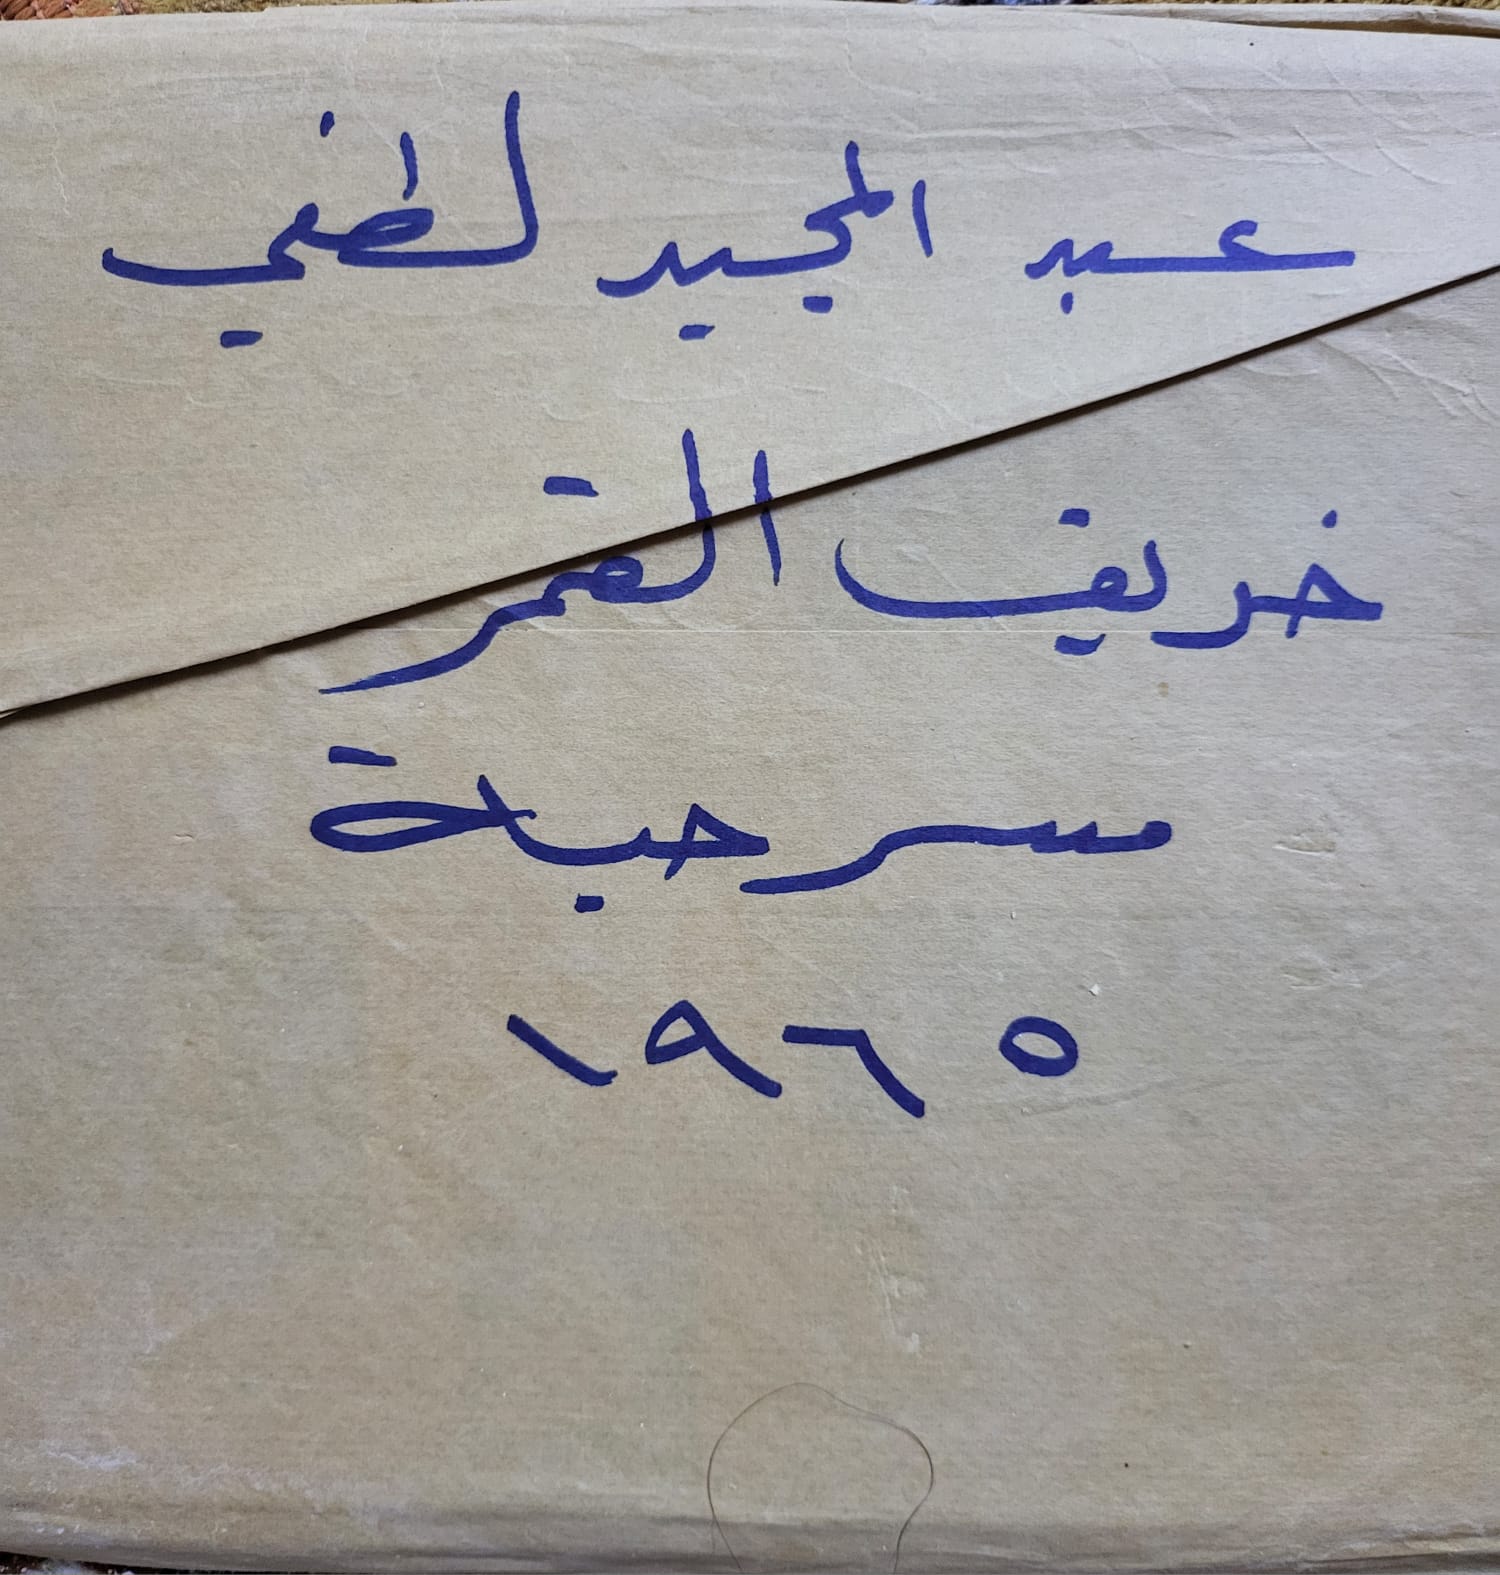 عبد المجيد لطفي
خريف القمر
مسرحية
١٩٦٥